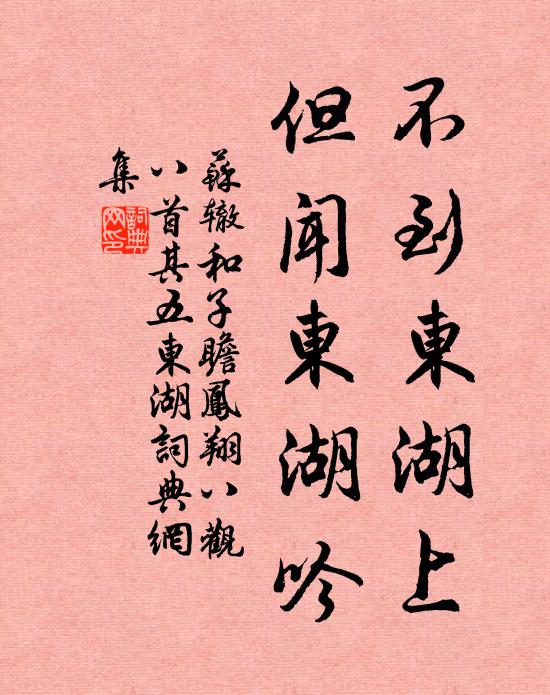 不到東湖上
但聞東湖吟
蘇轍和子瞻鳳翔八觀
八首其五東湖詞典網
集
詞典
网印